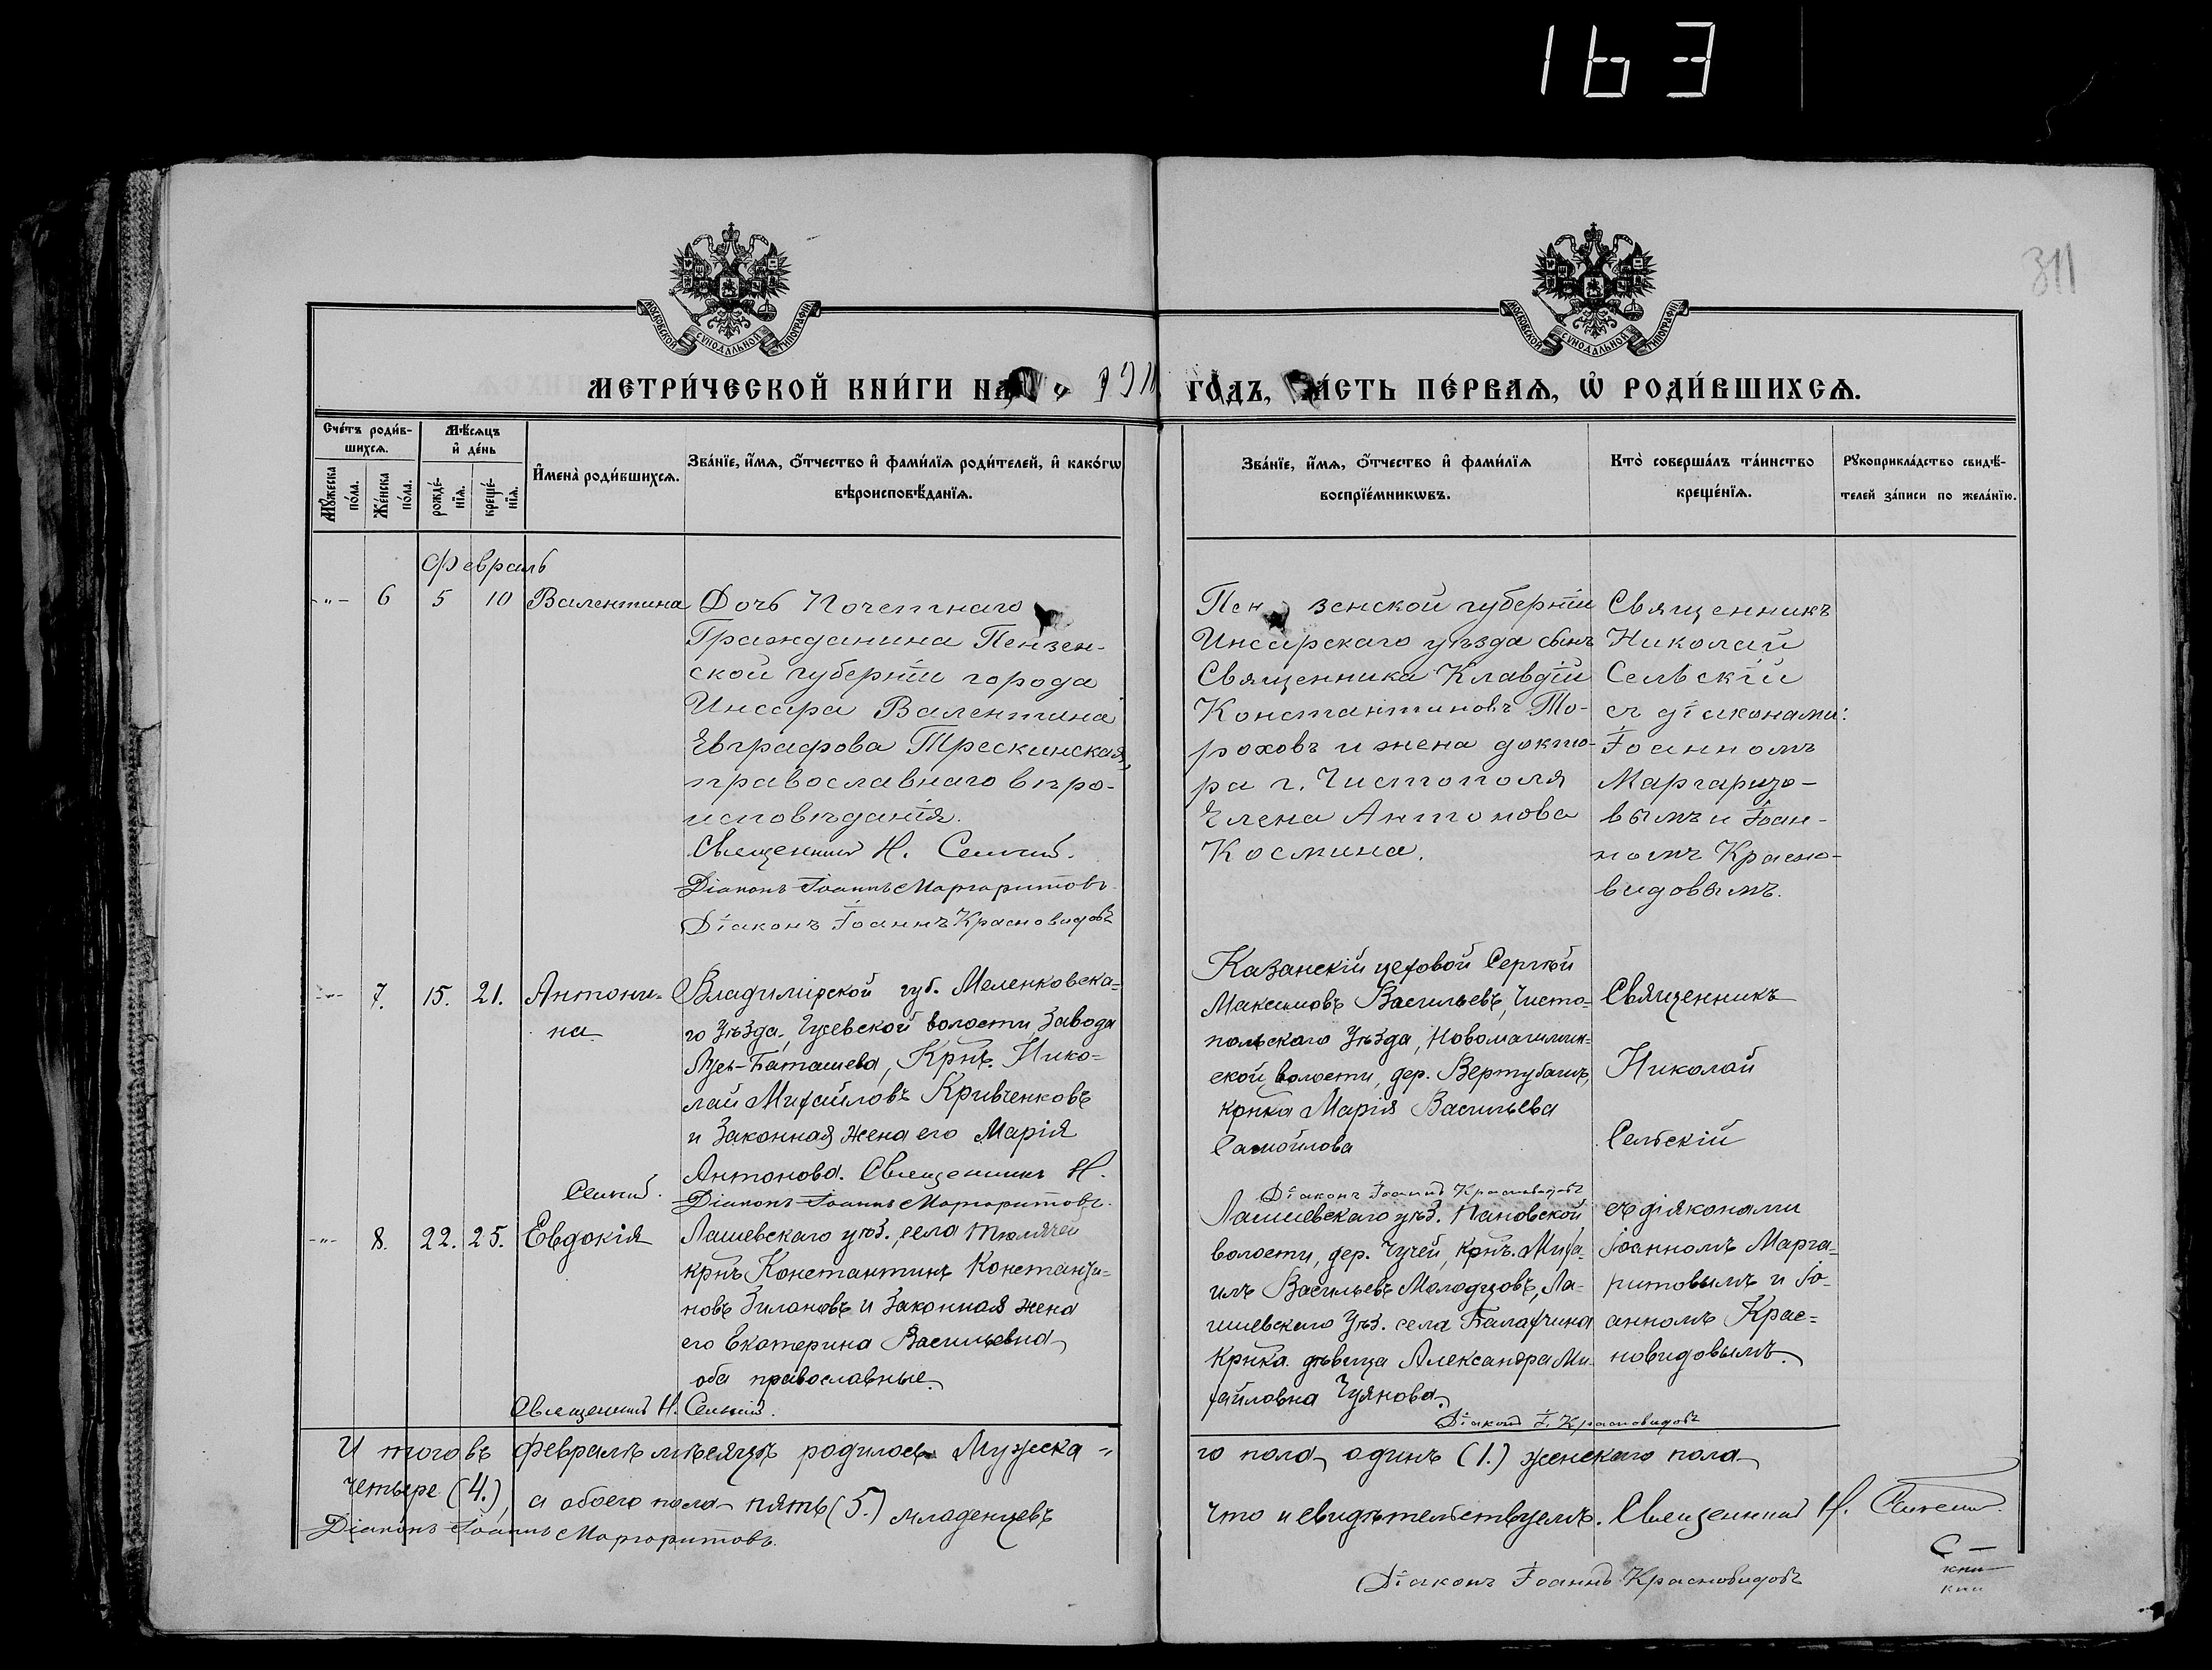 163
311
МОСКОВСКОЙ СѴНОДАЛЬНОЙ ТИПОГРАФІИ
МОСКОВСКОЙ СѴНОДАЛЬНОЙ ТИПОГРАФІИ
МЕТРИ́ЧЕСКОЙ КНИ́ГИ НА 1911 ГО́ДЪ, ЧА́СТЬ ПЕ́РВАѦ, Ѽ РОДИ́ВШИХСѦ.
Сче́тъ роди́в-
шихсѧ.
Мꙋ́жеска по́ла.
Же́нска по́ла.
Мѣ́сѧцъ и҆ де́нь
рожде́-нїѧ.
креще́-нїѧ.
И҆мена̀ роди́вшихсѧ.
Зва́нїе, и҆́мѧ, ѻ҆́тчество и҆ фами́лїѧ роди́телей, и҆ како́гѡ
вѣроисповѣ́данїѧ.
Зва́нїе, и҆́мѧ, ѻ҆́тчество и҆ фами́лїѧ
воспрїе́мникѡвъ.
Кто̀ соверша́лъ та́инство
креще́нїѧ.
Рꙋкоприкла́дство свидѣ́-
телей за́писи по жела́нїю.
Февраль
-"- 6 5 10 Валентина
Дочь Почетнаго
Гражданина Пензен-
ской губерніи города
Инсара Валентина
Евграфова Трескинская,
православнаго вѣро-
исповѣданія.
Священникъ Н. Сельскій.
Діаконъ Іоаннъ Маргаритовъ.
Діаконъ Іоаннъ Красновидовъ
Пензенской губерніи
Инсарскаго уѣзда сынъ
Священника Клавдій
Константиновъ То-
роховъ и жена докто-
ра г. Чистополя
Елена Антонова
Космина.
Священникъ
Николай
Сельскій
съ діаконами:
Іоанномъ
Маргарито-
вымъ и Іоан-
номъ Красно-
видовымъ.
-"- 7. 15. 21. Антони-
на
Владимірской губ. Меленковска-
го Уѣзда, Гусевской волости, Завода
Гусь-Баташева, Крнъ. Нико-
лай Михайловъ Кривченковъ
и Законная жена его Марія
Антонова. Священникъ Н.
Сельскій.
Діаконъ Іоаннъ Маргаритовъ.
Казанскій цеховой Сергѣй
Максимовъ Васильевъ, Чисто-
польскаго Уѣзда,
ской волости, дер.
крнка Марія Васильева
Самойлова
Діаконъ Іоаннъ Красновидовъ
Священникъ
Николай
Сельскій
-"- 8. 22. 25. Евдокія
Лаишевскаго уѣз., села Тюлячей
крнъ Константинъ Константи-
новъ Зилановъ и Законная жена
его Екатерина Васильевна
оба православные.
Священникъ Н. Сельскій.
Лаишевскаго уѣз. Пановской
волости, дер. Чучей, крнъ. Миха-
илъ Васильевъ Молодцовъ, Ла-
ишевскаго Уѣз. села
Крнка дѣвица Александра Ми-
хайловна Чуянова.
Діаконъ І. Красновидовъ
съ діяконами
Іоанномъ Марга-
ритовымъ и Іо-
анномъ Крас-
новидовымъ.
И того въ февралѣ мѣсяцѣ родилось Мужска-
го пола одинъ (1.) женскаго пола
четыре (4.), а обоего пола пять (5.) младенцевъ
что и свидѣтельствуемъ. Священникъ Н. Сельскій.
Діаконъ Іоаннъ Маргаритовъ.
Діаконъ Іоаннъ Красновидовъ